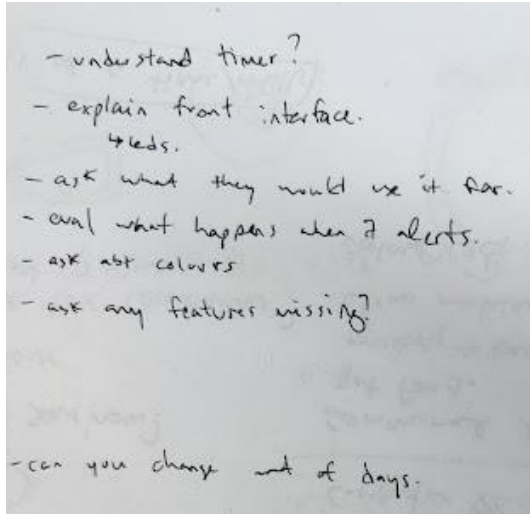 - understand timer?
- explain front interface.
↳ leds.
- ask what they would use it for.
- eval what happens when 7 alerts.
- ask abt colours
- ask any features missing?
- can you change amt of days.